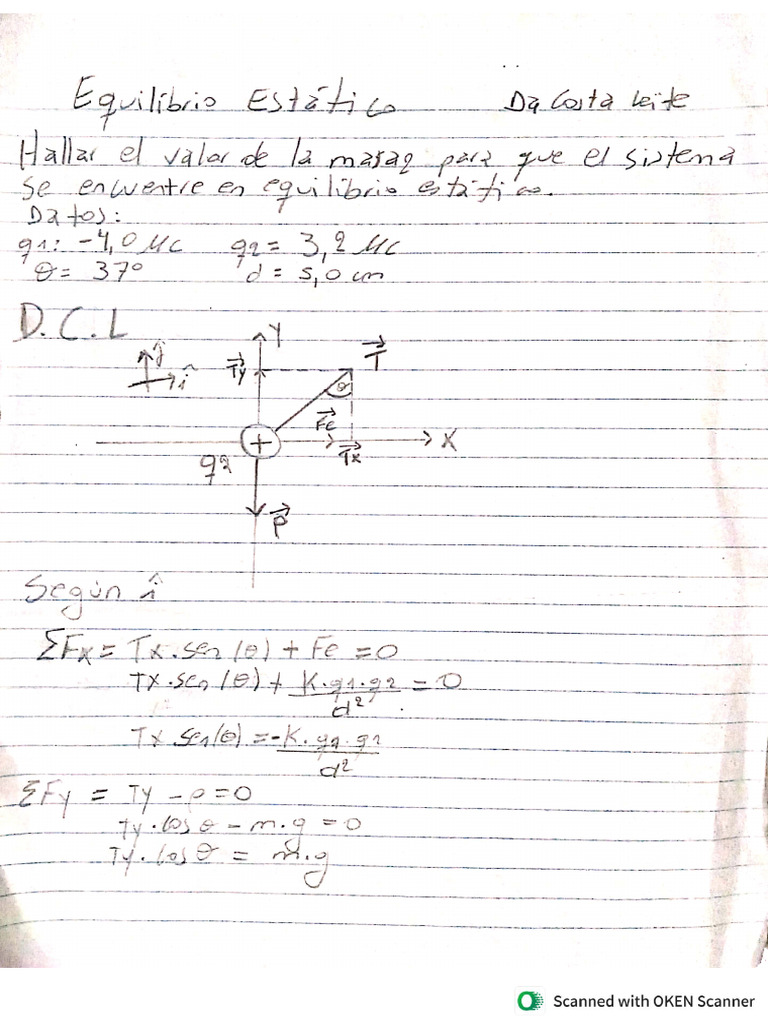 Equilibrio Estático Da Costa Leite
Hallar el valor de la masa2 para que el sistema
se encuentre en equilibrio estático.
Datos:
q1: -4,0 Mc q2 = 3,2 Mc
θ = 37° d = 5,0 cm
D.C.L
Y
ĵ
î
Ty
T
θ
Fe
+
X
Tx
q2
P
Según î
ΣFx = Tx.sen(θ) + Fe = 0
Tx.sen(θ) + K.q1.q2 = 0
d²
Tx sen(θ) = -K.q1.q2
d²
ΣFy = Ty - P = 0
Ty.cos θ - m.g = 0
Ty.cos θ = m.g
Scanned with OKEN Scanner